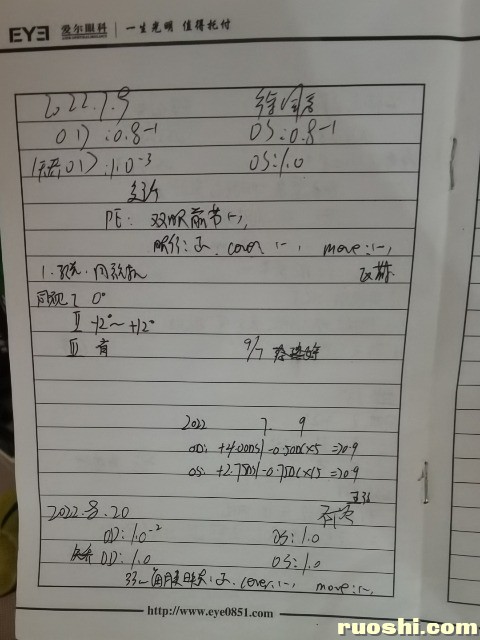 EYE 爱尔眼科 一生光明 值得托付
2022.7.9
OD:0.8-1 OS:0.8-1
OD:1.0-3 OS:1.0
PE: 双眼前节(-),
眼位:正. cover:(-), move:(-),
1.
同视 I 0°
II -12°~+12°
III 有 9/7
2022 7. 9
OD: +4.00DS/-0.50DC×5 =>0.9
OS: +2.75DS/-0.75DC×15 =>0.9
2022.8.20
OD:1.0-2 OS:1.0
OD:1.0 OS:1.0
正. cover:(-), move:(-).
http://www.eye0851.com
ruoshi.com